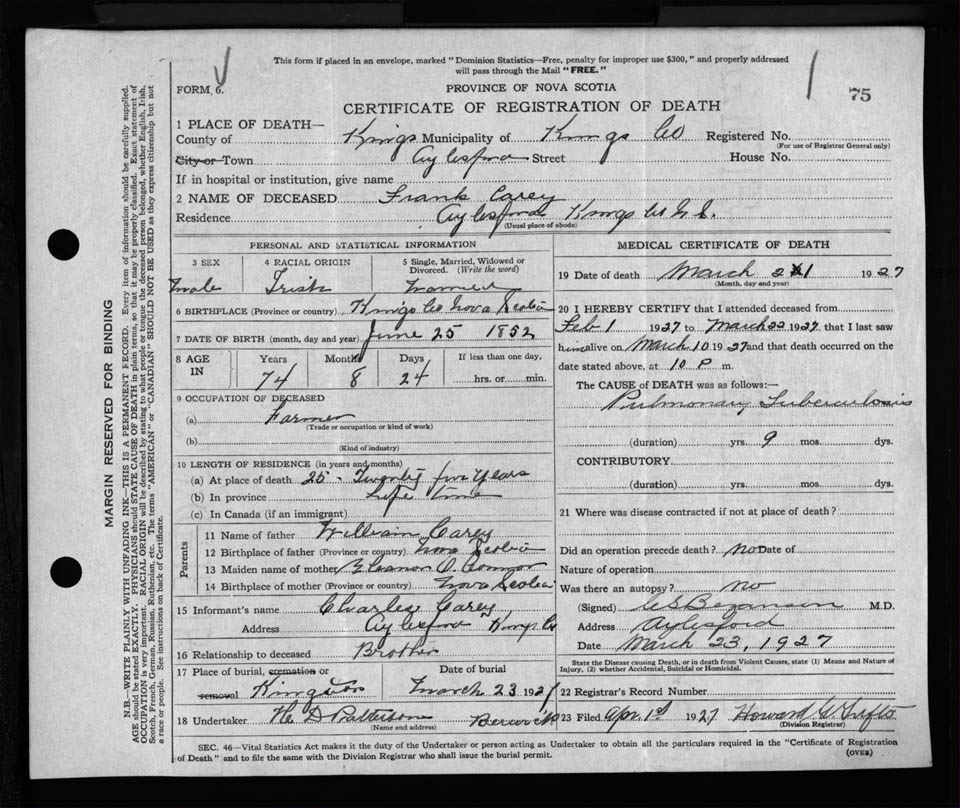 This form if placed in an envelope, marked "Dominion Statistics—Free, penalty for improper use $300," and properly addressed
will pass through the Mail "FREE."
FORM 6.
PROVINCE OF NOVA SCOTIA
1 75
CERTIFICATE OF REGISTRATION OF DEATH
1 PLACE OF DEATH—
County of Kings Municipality of Kings Co Registered No.
(For use of Registrar General only)
City or Town Aylesford Street House No.
If in hospital or institution, give name
2 NAME OF DECEASED Frank Carey
Residence Aylesford Kings Co N.S.
(Usual place of abode)
PERSONAL AND STATISTICAL INFORMATION
3 SEX 4 RACIAL ORIGIN 5 Single, Married, Widowed or Divorced. (Write the word)
Male Irish Married
6 BIRTHPLACE (Province or country) Kings Co Nova Scotia
7 DATE OF BIRTH (month, day and year) June 25 1852
8 AGE IN Years Months Days If less than one day,
74 8 24 hrs. or min.
9 OCCUPATION OF DECEASED
(a) Farmer
(Trade or occupation or kind of work)
(b)
(Kind of industry)
10 LENGTH OF RESIDENCE (in years and months)
(a) At place of death 25 - Twenty five Years
(b) In province Life time
(c) In Canada (if an immigrant)
Parents
11 Name of father William Carey
12 Birthplace of father (Province or country) Nova Scotia
13 Maiden name of mother Eleanor O. Connor
14 Birthplace of mother (Province or country) Nova Scotia
15 Informant's name Charles Carey
Address Aylesford Kings Co
16 Relationship to deceased Brother
17 Place of burial, cremation or removal Kingston Date of burial March 23 1927
18 Undertaker H. D Patterson Berwick
(Name and address)
MEDICAL CERTIFICATE OF DEATH
19 Date of death March 21 1927
(Month, day and year)
20 I HEREBY CERTIFY that I attended deceased from
Feb 1 1927 to March 22 1927 that I last saw
him alive on March 10 1927 and that death occurred on the
date stated above, at 10 P m.
The CAUSE of DEATH was as follows:—
Pulmonary Tuberculosis
(duration) yrs. 9 mos. dys.
CONTRIBUTORY
(duration) yrs. mos. dys.
21 Where was disease contracted if not at place of death?
Did an operation precede death? no Date of
Nature of operation
Was there an autopsy? no
(Signed) M.D.
Address Aylesford
Date March 23, 1927
State the Disease causing Death, or in death from Violent Causes, state (1) Means and Nature of
Injury, (2) whether Accidental, Suicidal or Homicidal.
22 Registrar's Record Number
23 Filed Apr. 1st 1927 Howard
(Division Registrar)
SEC. 46—Vital Statistics Act makes it the duty of the Undertaker or person acting as Undertaker to obtain all the particulars required in the "Certificate of Registration
of Death" and to file the same with the Division Registrar who shall issue the burial permit.
(OVER)
MARGIN RESERVED FOR BINDING
N.B.—WRITE PLAINLY WITH UNFADING INK—THIS IS A PERMANENT RECORD. Every item of information should be carefully supplied.
AGE should be stated EXACTLY. PHYSICIANS should STATE CAUSE OF DEATH in plain terms, so that it may be properly classified. Exact statement of
OCCUPATION is very important. RACIAL ORIGIN will be described by stating to what people or tongue the deceased person belonged, whether English, Irish,
Scotch, French, German, Russian, Ruthenian, etc. The terms "AMERICAN" or "CANADIAN" SHOULD NOT BE USED as they express citizenship but not
a race or people. See instructions on back of Certificate.